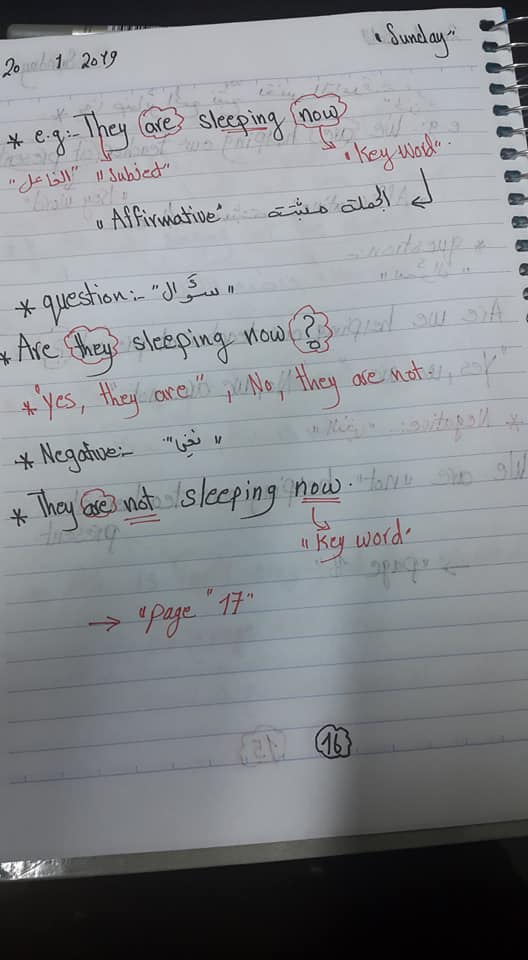 20 1 2019 "Sunday"
* e.g:- They are sleeping now
"الفاعل" "Subject" "Key word".
"Affirmative" الجملة مثبتة
* question:- "سؤال"
* Are they sleeping now?
* "Yes, they are", No, they are not
* Negative:- "نفي"
* They are not sleeping now.
"Key word"
→ "page "17"
16